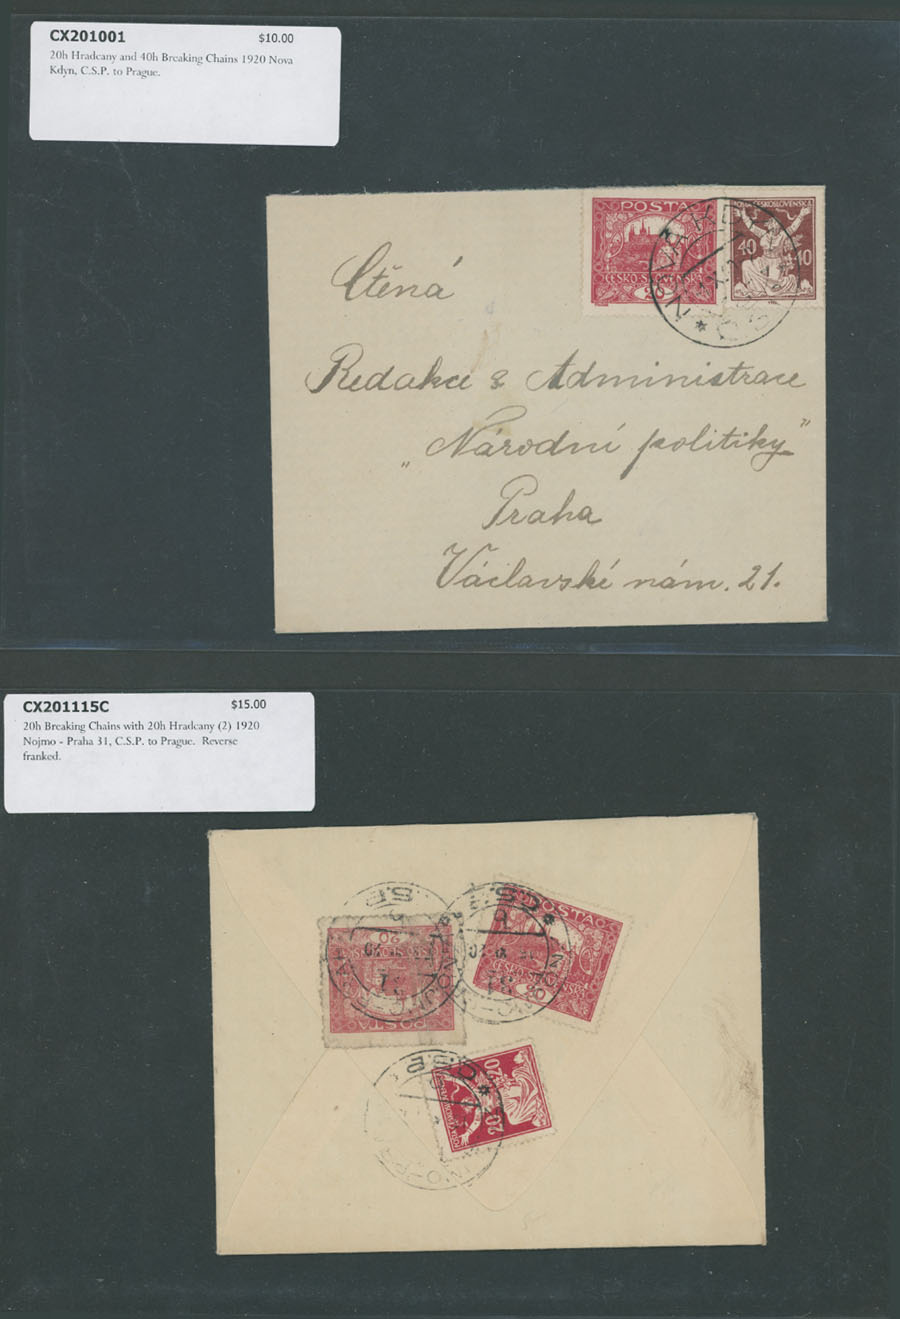 CX201001 $10.00
20h Hradcany and 40h Breaking Chains 1920 Nova
Kdyn, C.S.P. to Prague.
POSTA
ČESKO-SLOVENSKÁ
20
POŠTA ČESKOSLOVENSKÁ
40 40
Ctěná
Redakce & Administrace
„Národní politiky"
Praha
Václavské nám. 21.
CX201115C $15.00
20h Breaking Chains with 20h Hradcany (2) 1920
Nojmo - Praha 31, C.S.P. to Prague. Reverse
franked.
C.S.P.
POSTA
ČESKO-SLOVENSKÁ
20
POSTA
20
C.S.P.
20 20